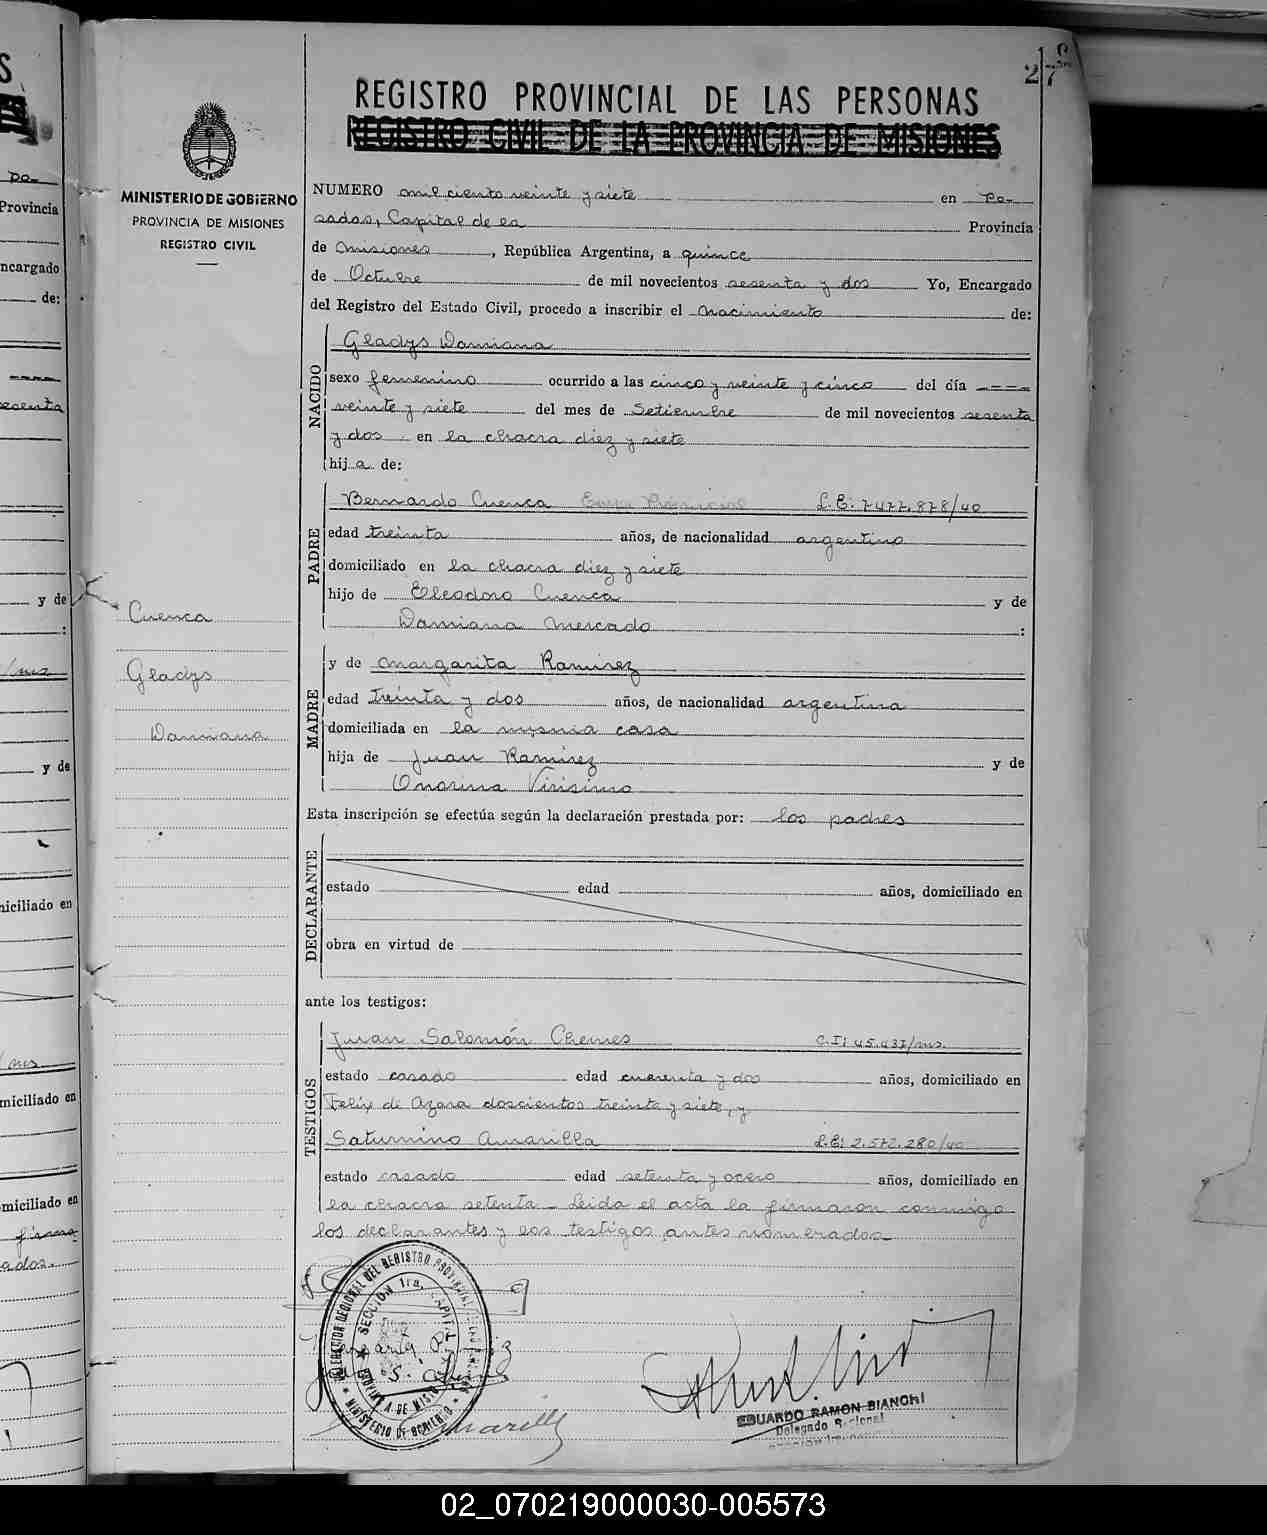 27
REGISTRO PROVINCIAL DE LAS PERSONAS
REGISTRO CIVIL DE LA PROVINCIA DE MISIONES
MINISTERIO DE GOBIERNO
PROVINCIA DE MISIONES
REGISTRO CIVIL
NUMERO mil ciento veinte y siete en Po-
sadas, Capital de la Provincia
de Misiones, República Argentina, a quince
de Octubre de mil novecientos sesenta y dos Yo, Encargado
del Registro del Estado Civil, procedo a inscribir el nacimiento de:
NACIDO
Gladys Damiana
sexo femenino ocurrido a las cinco y veinte y cinco del día ----
veinte y siete del mes de Setiembre de mil novecientos sesenta
y dos en la chacra diez y siete
hija de:
PADRE
Bernardo Cuenca L.E: 7477.878/40
edad treinta años, de nacionalidad argentino
domiciliado en la chacra diez y siete
hijo de Eleodoro Cuenca y de
Damiana Mercado :
Cuenca
Gladys
Damiana
MADRE
y de Margarita Ramirez
edad treinta y dos años, de nacionalidad argentina
domiciliada en la misma casa
hija de Juan Ramirez y de
Onorina Virisimo
Esta inscripción se efectúa según la declaración prestada por: los padres
DECLARANTE
estado edad años, domiciliado en
obra en virtud de
ante los testigos:
TESTIGOS
Juan Salomón Chemes C.I: 45.437/ms.
estado casado edad cuarenta y dos años, domiciliado en
Felix de Azara doscientos treinta y siete, y
Saturnino Amarilla L.E: 2.572.280/40
estado casado edad setenta y ocho años, domiciliado en
la chacra setenta - Leida el acta la firmaron conmigo
los declarantes y los testigos antes nomerados-
SECCION 1ra. CAPITAL
MINISTERIO DE GOBIERNO
EDUARDO RAMON BIANCHI
Delegado Regional
02_070219000030-005573